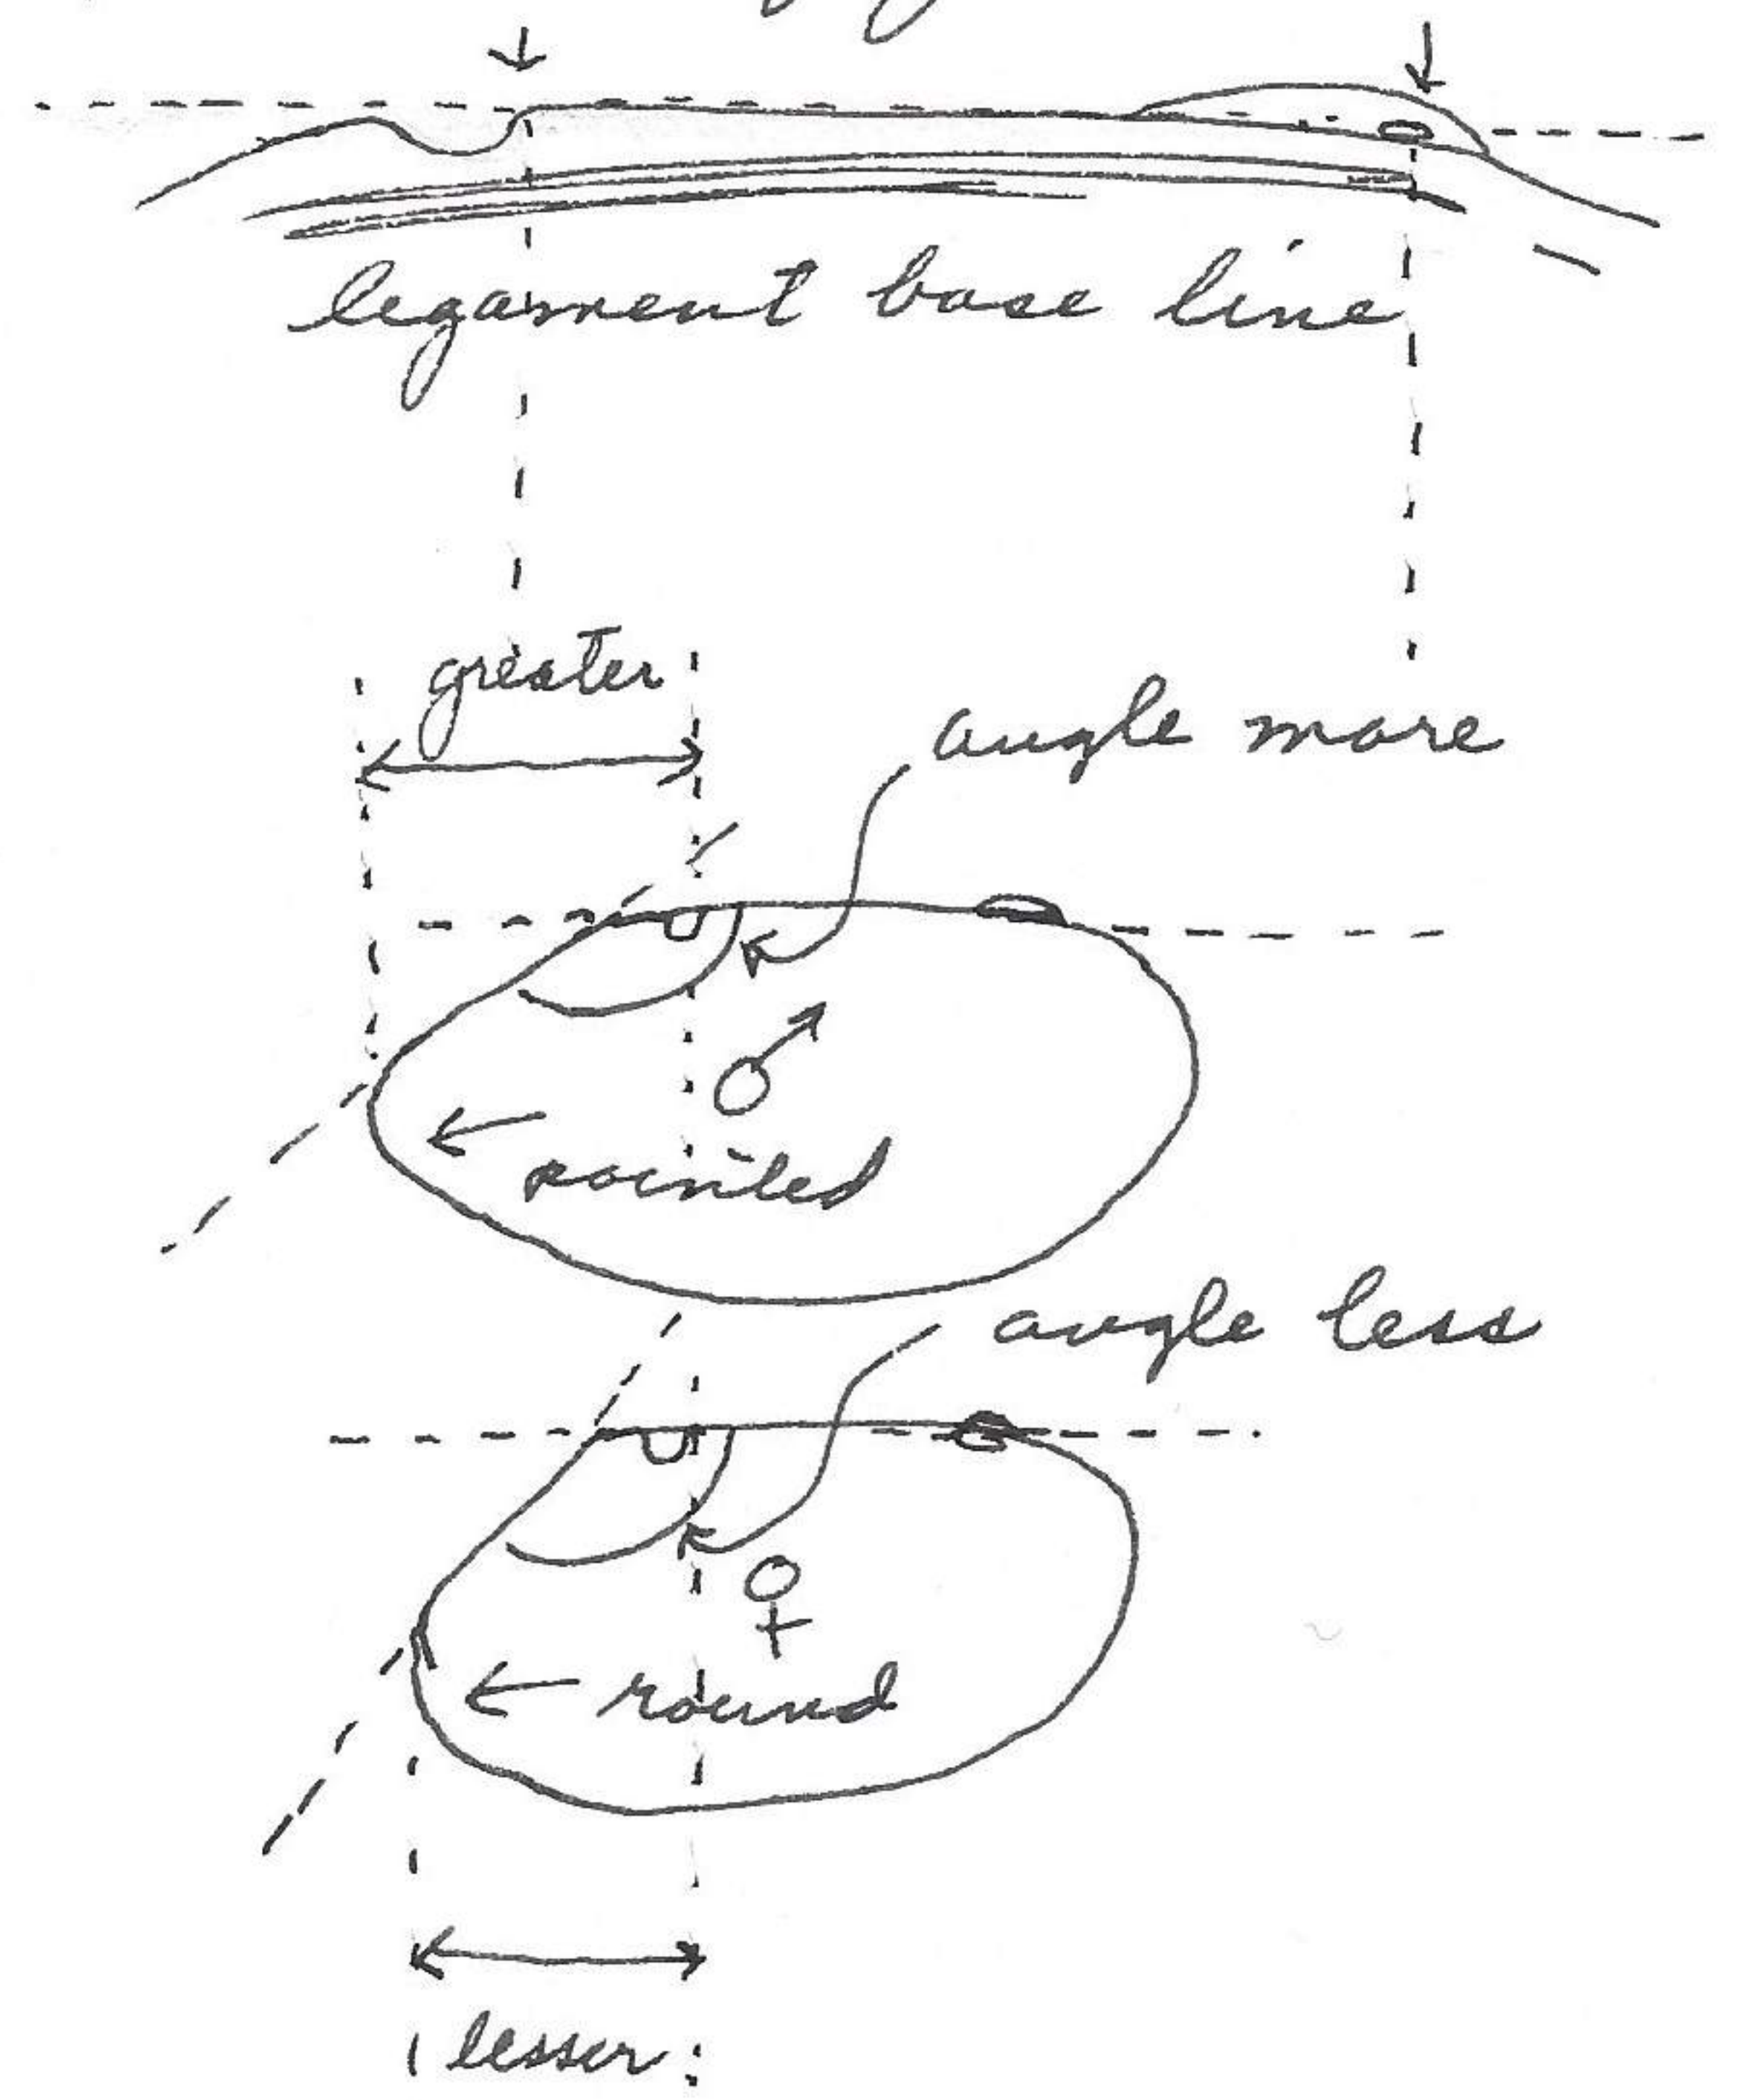 legament base line
greater
angle more
♂
pointed
angle less
♀
round
lesser